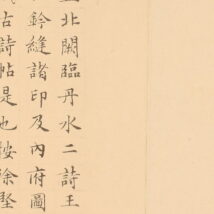 北闕臨丹水二詩王
鈐縫諸印及內府圖
古詩帖是也按徐堅